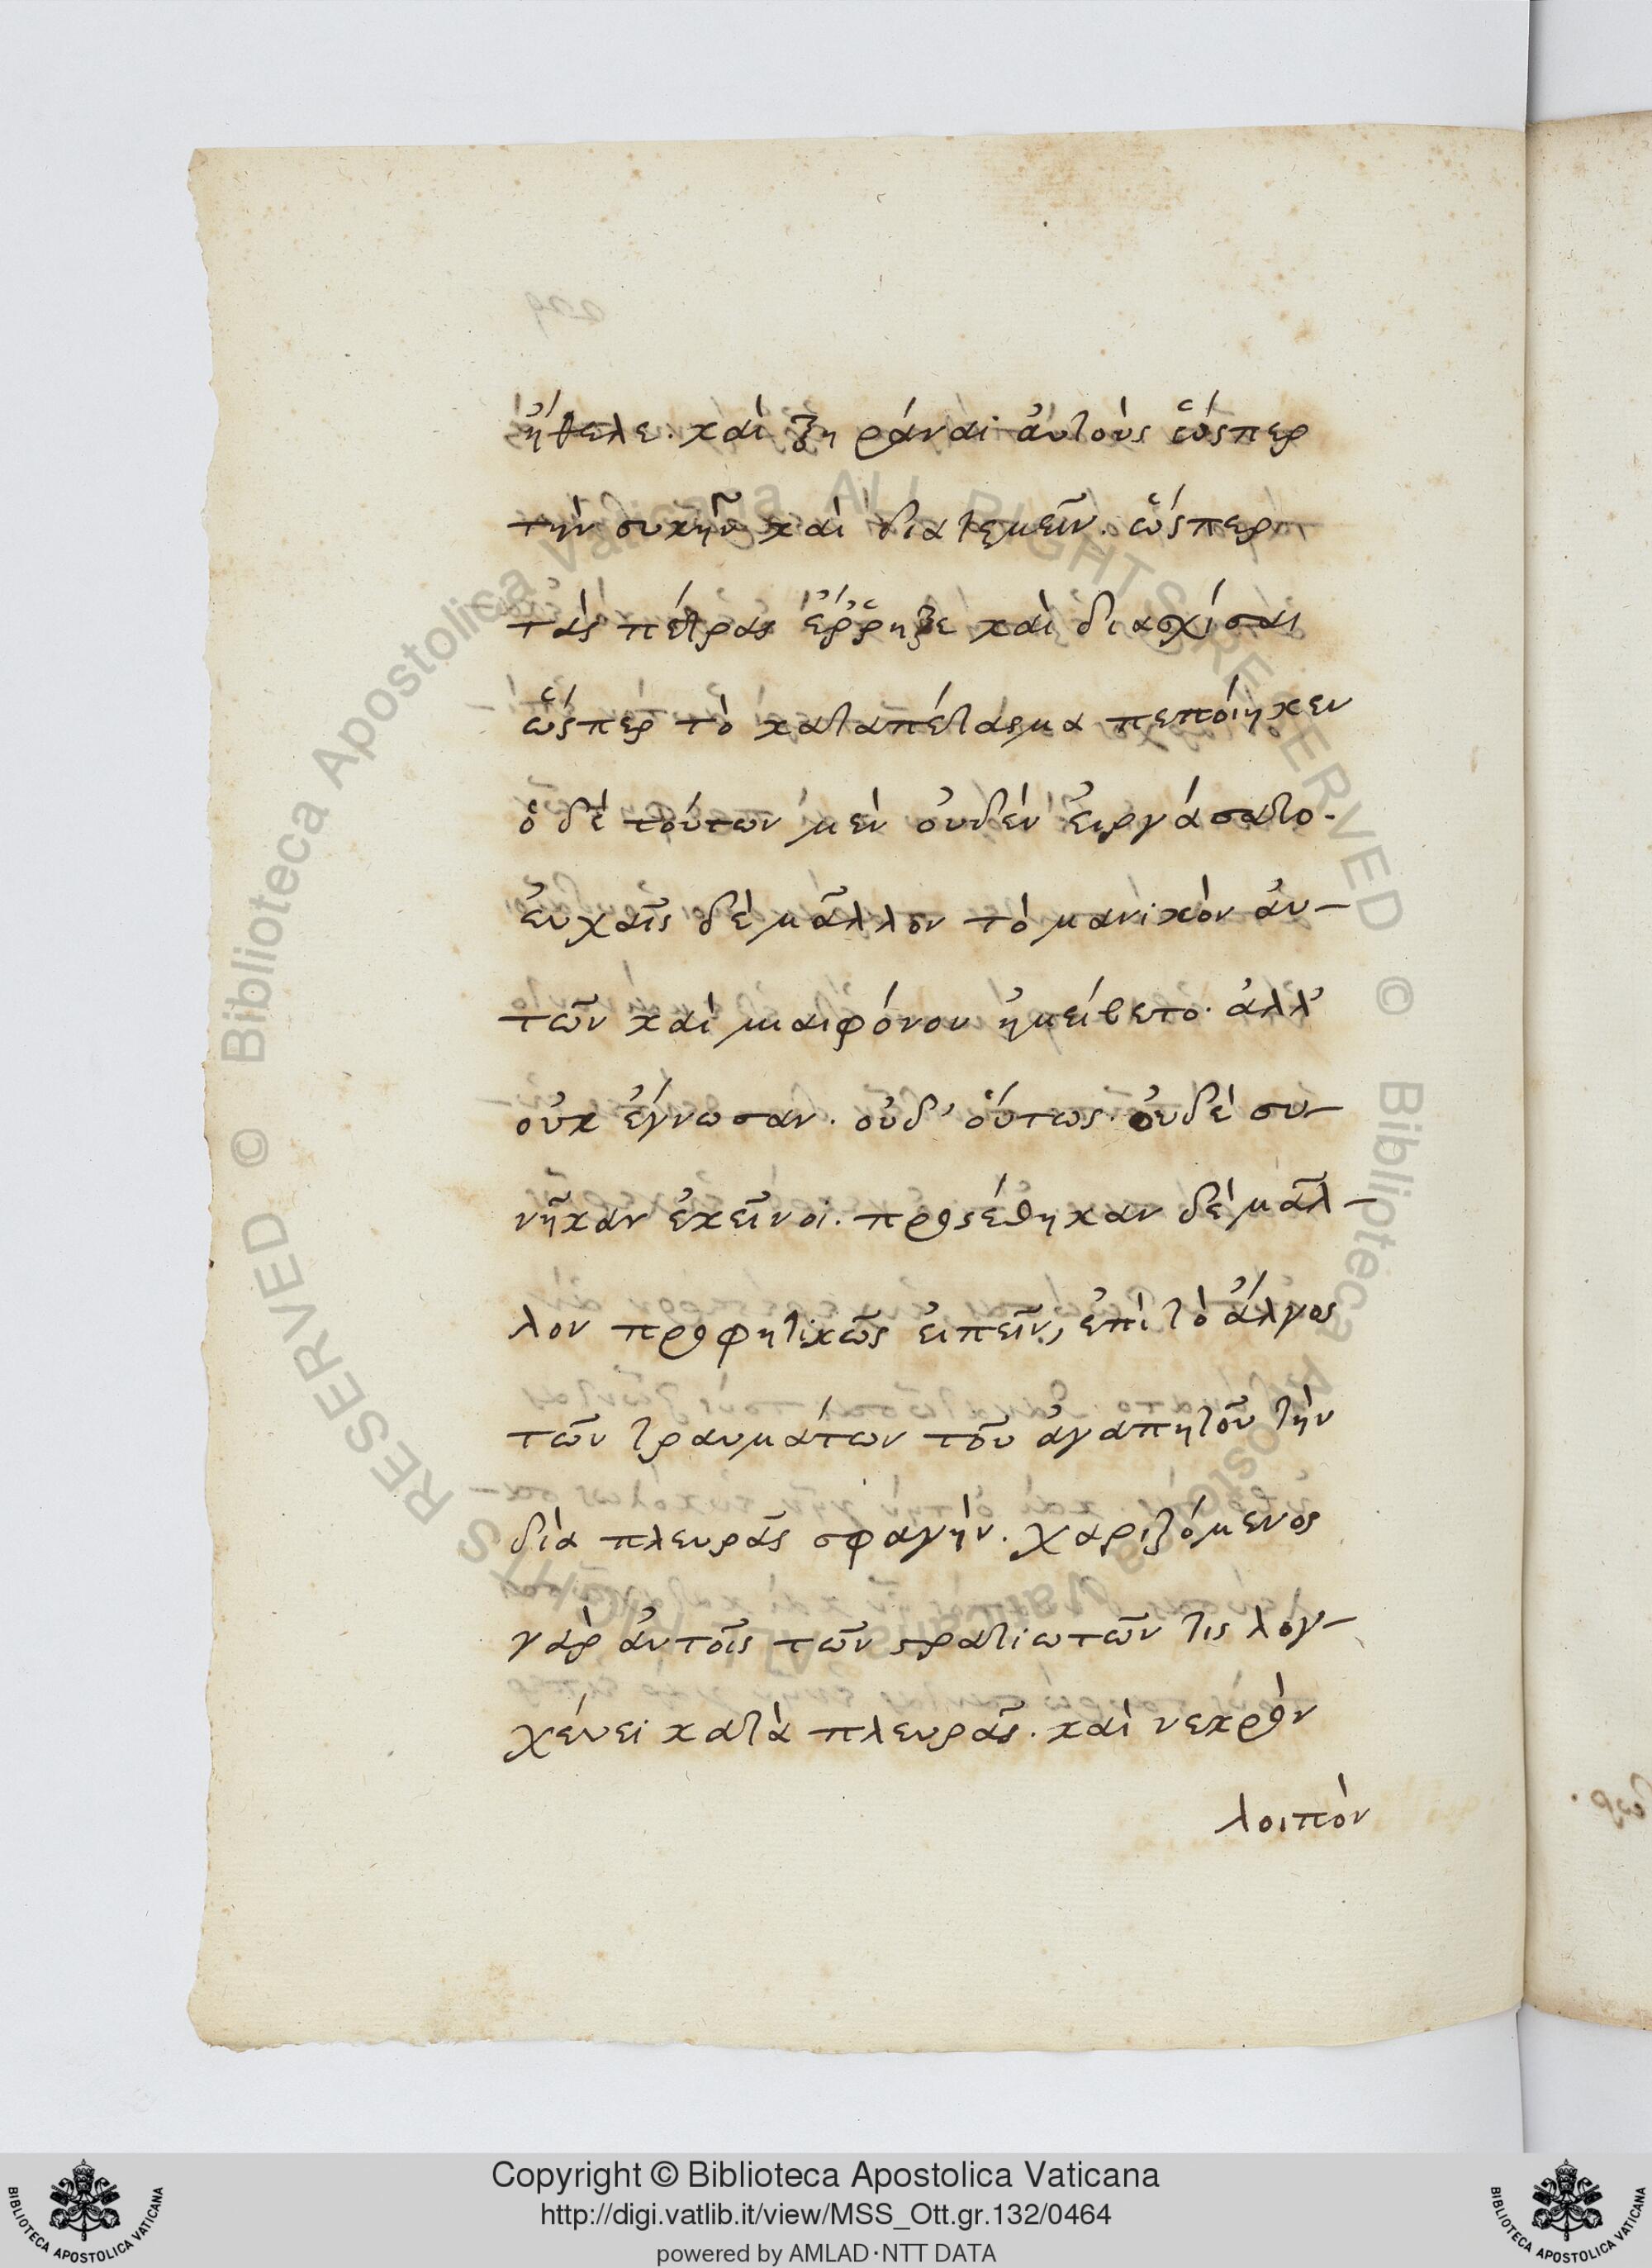 ἤθελε. καὶ ξηράναι ἀυτοὺς ὥςπερ
τὴν συκῆν καὶ διατεμεῖν. ὥςπερ
τὰς πέτρας ἔῤῥηξε καὶ διασχίσαι
ὥςπερ τὸ καταπέτασμα πεποίηκεν
ὁ δὲ τούτων μὲν ὀυδὲν ἐιργάσατο.
ἐυχαῖς δὲ μᾶλλον τὸ μανικὸν ἀυ-
τῶν καὶ μιαιφόνον ἠμείβετο. ἀλλ'
οὐκ ἔγνωσαν. οὐδ' ὅυτως. ὀυδὲ συ-
νῆκαν ἐκεῖνοι. προςέθηκαν δὲ μᾶλ-
λον προφητικῶς ἐιπεῖν, ἐπὶ τὸ ἄλγος
τῶν τραυμάτων τοῦ ἀγαπητοῦ τὴν
διὰ πλευρᾶς σφαγήν. χαριζόμενος
γὰρ ἀυτοῖς τῶν στρατιωτῶν τις λογ-
χέυει κατὰ πλευρᾶς. καὶ νεκρὸν
λοιπὸν
© Biblioteca Apostolica Vaticana ALL RIGHTS RESERVED © Biblioteca Apostolica Vaticana ALL RIGHTS RESERVED
Copyright © Biblioteca Apostolica Vaticana
http://digi.vatlib.it/view/MSS_Ott.gr.132/0464
powered by AMLAD·NTT DATA
BIBLIOTECA APOSTOLICA VATICANA
BIBLIOTECA APOSTOLICA VATICANA